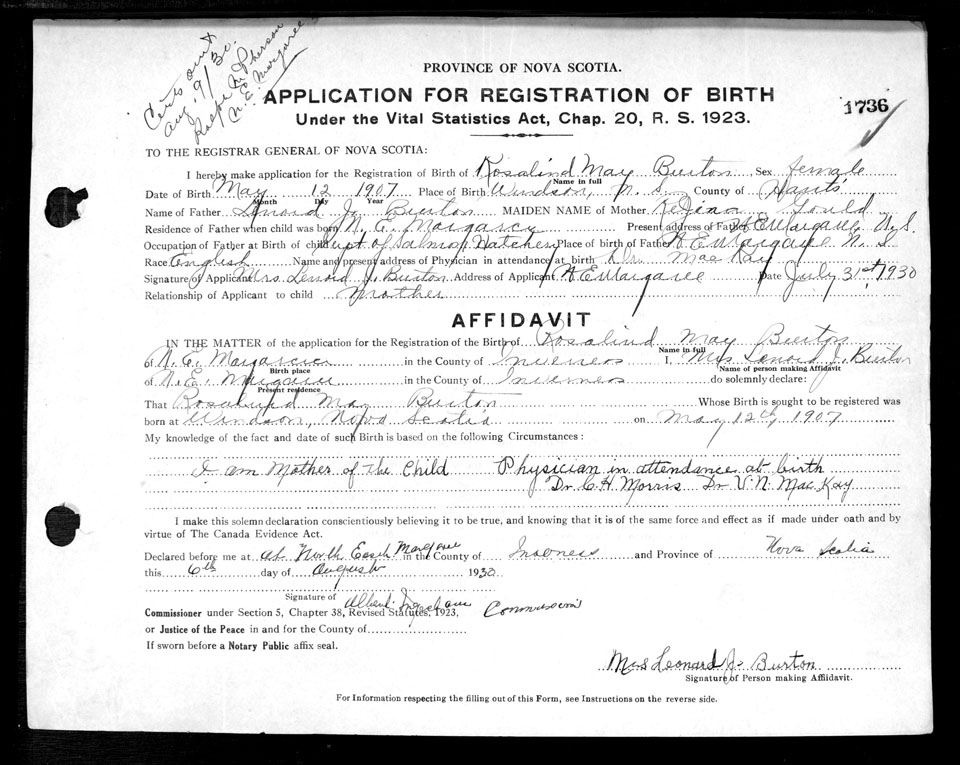 Cert out
Aug. 9/30.
Ralph McPherson
N. E. Margaree
PROVINCE OF NOVA SCOTIA.
APPLICATION FOR REGISTRATION OF BIRTH
1736
Under the Vital Statistics Act, Chap. 20, R. S. 1923.
TO THE REGISTRAR GENERAL OF NOVA SCOTIA:
I hereby make application for the Registration of Birth of Rosalind May Burton Sex female
Name in full
Date of Birth May 12 1907 Place of Birth Windsor, N. S. County of Hants
Month Day Year
Name of Father J. Burton MAIDEN NAME of Mother Gould
Residence of Father when child was born N. E. Margaree Present address of Father N E Margaree N. S.
Occupation of Father at Birth of child Supt of Salmon Hatchery Place of birth of Father N E Margaree N. S.
Race English Name and present address of Physician in attendance at birth MacKay
Signature of Applicant Mrs. Lenord J. Burton Address of Applicant N E Margaree Date July 31st 1930
Relationship of Applicant to child Mother
AFFIDAVIT
IN THE MATTER of the application for the Registration of the Birth of Rosalind May Burton
Name in full
of N. E. Margaree in the County of Inverness I, Mrs Lenord J. Burton
Birth place Name of person making Affidavit
of N. E. Margaree in the County of Inverness do solemnly declare:
Present residence
That Rosalind May Burton Whose Birth is sought to be registered was
born at Windsor, Nova Scotia on May 12th, 1907
My knowledge of the fact and date of such Birth is based on the following Circumstances:
I am Mother of the Child Physician in attendance at birth
Dr C. H Morris Dr V. N. MacKay
I make this solemn declaration conscientiously believing it to be true, and knowing that it is of the same force and effect as if made under oath and by
virtue of The Canada Evidence Act.
Declared before me at at North East Margaree in the County of Inverness and Province of Nova Scotia
this 6th day of August 1930
Signature of Albert
Commissioner under Section 5, Chapter 38, Revised Statutes, 1923,
or Justice of the Peace in and for the County of
If sworn before a Notary Public affix seal.
Mrs Leonard J. Burton
Signature of Person making Affidavit.
For Information respecting the filling out of this Form, see Instructions on the reverse side.